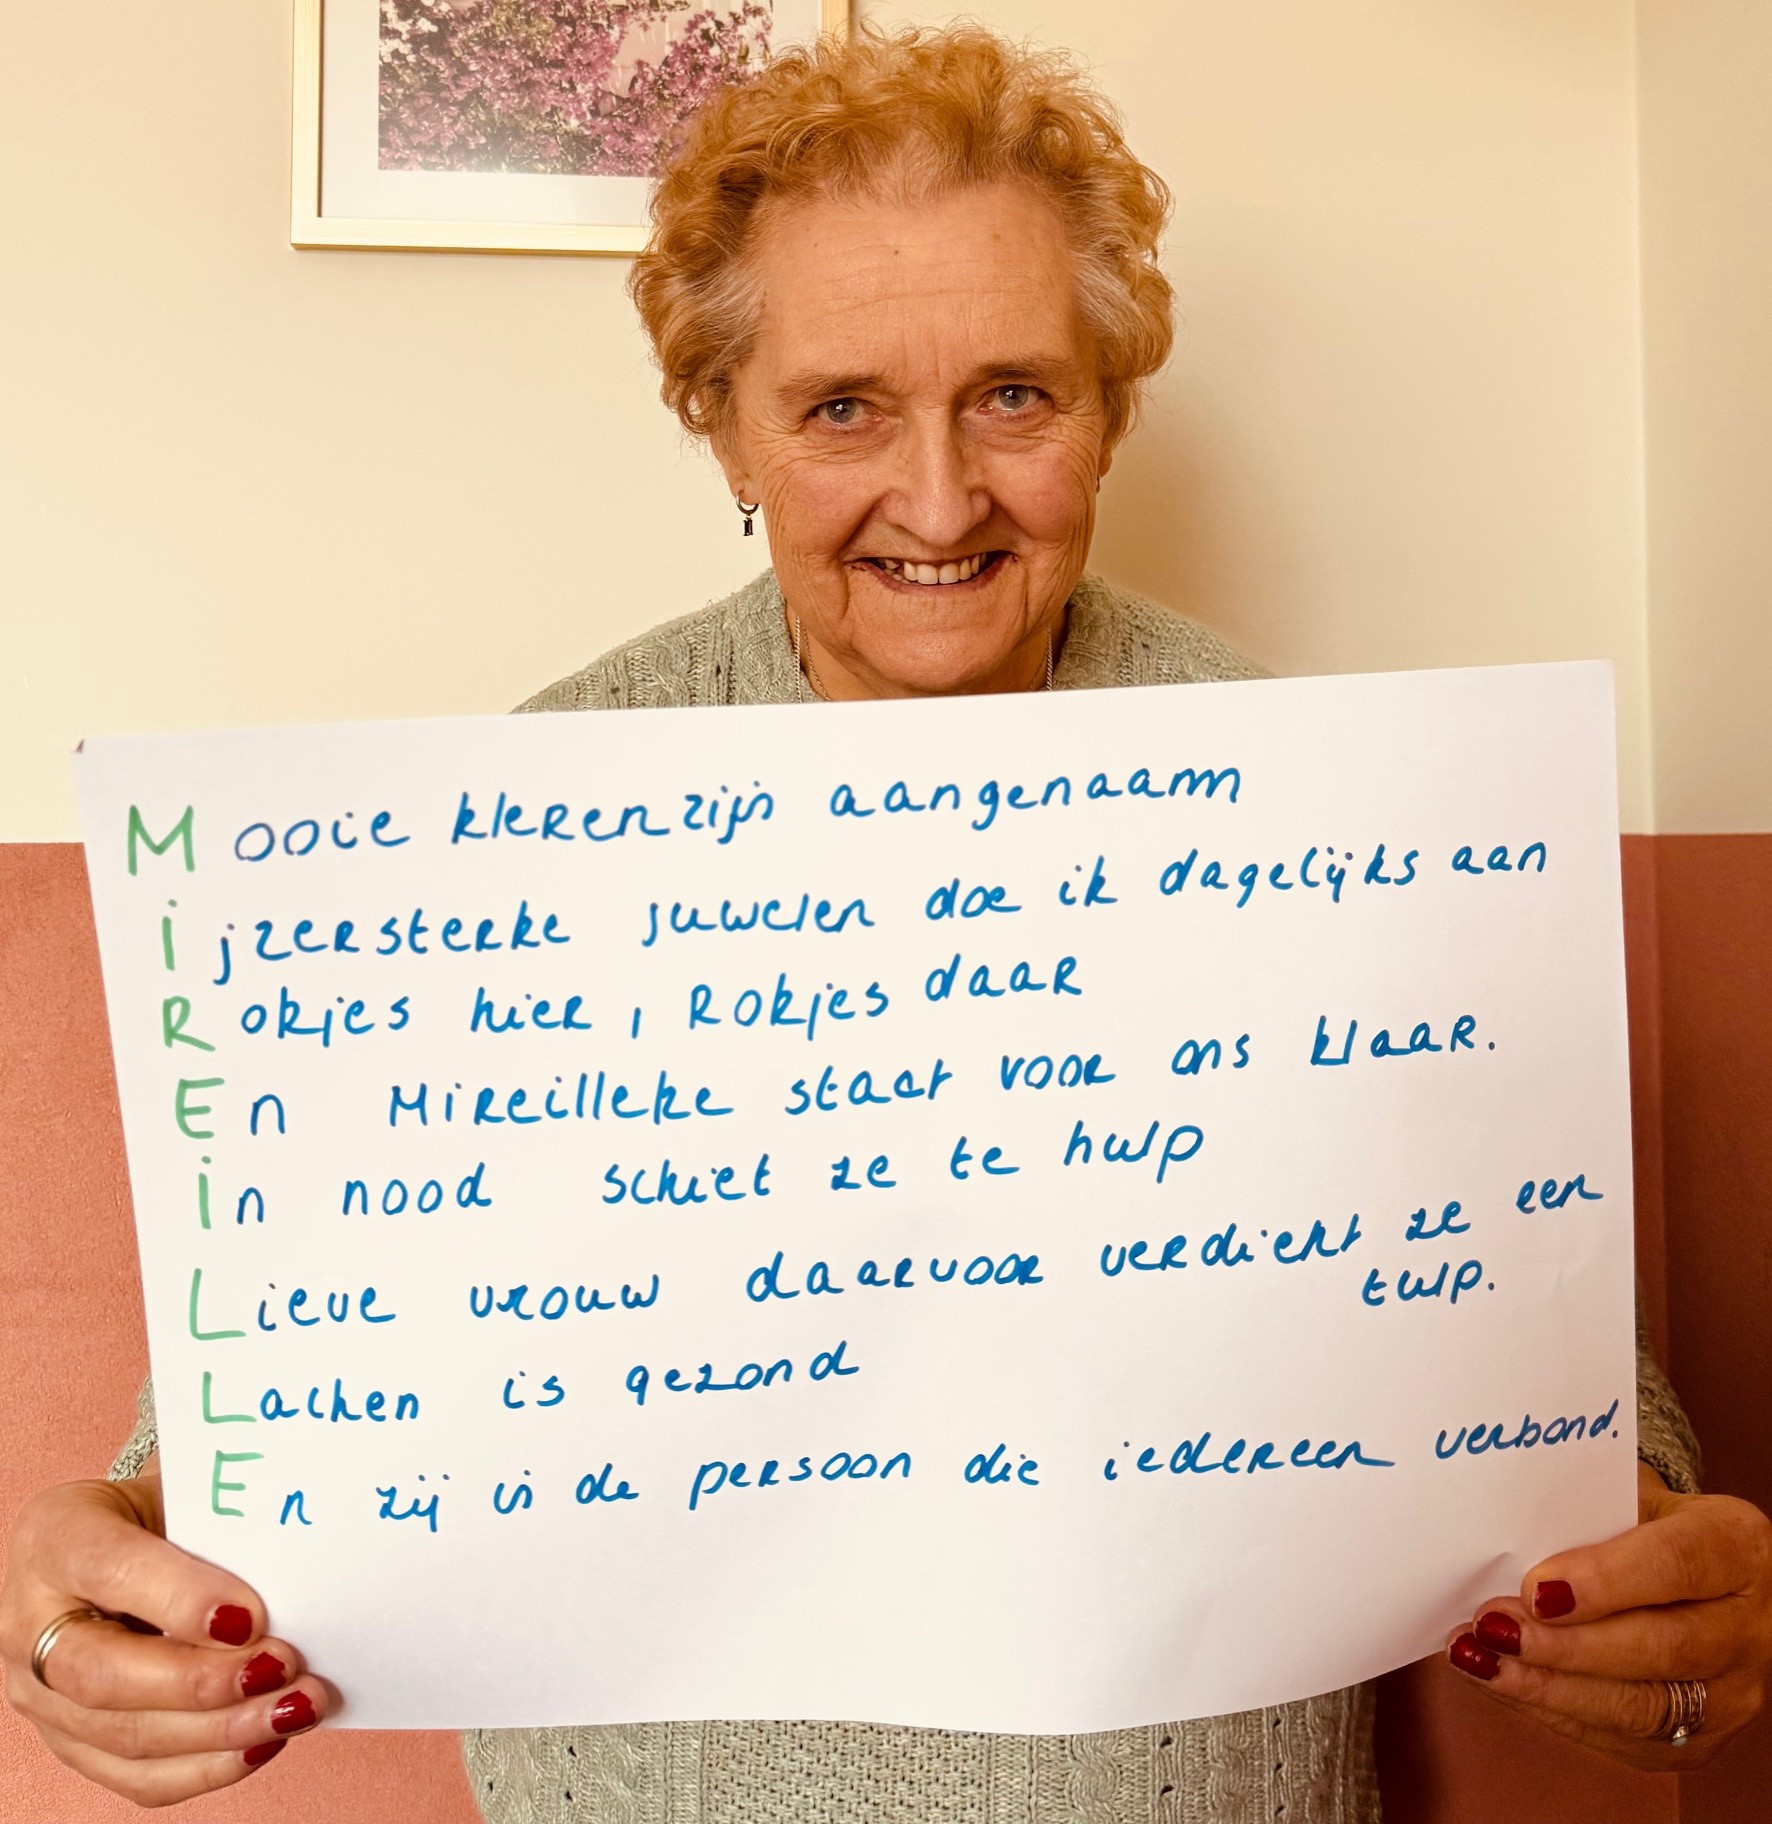 Mooie kleren zijn aangenaam
ijzersterke juwelen doe ik dagelijks aan
Rokjes hier, Rokjes daar
En Mireilleke staat voor ons klaar.
in nood schiet ze te hulp
Lieve vrouw daarvoor verdient ze een
tulp.
Lachen is gezond
En zij is de persoon die iedereen verbond.